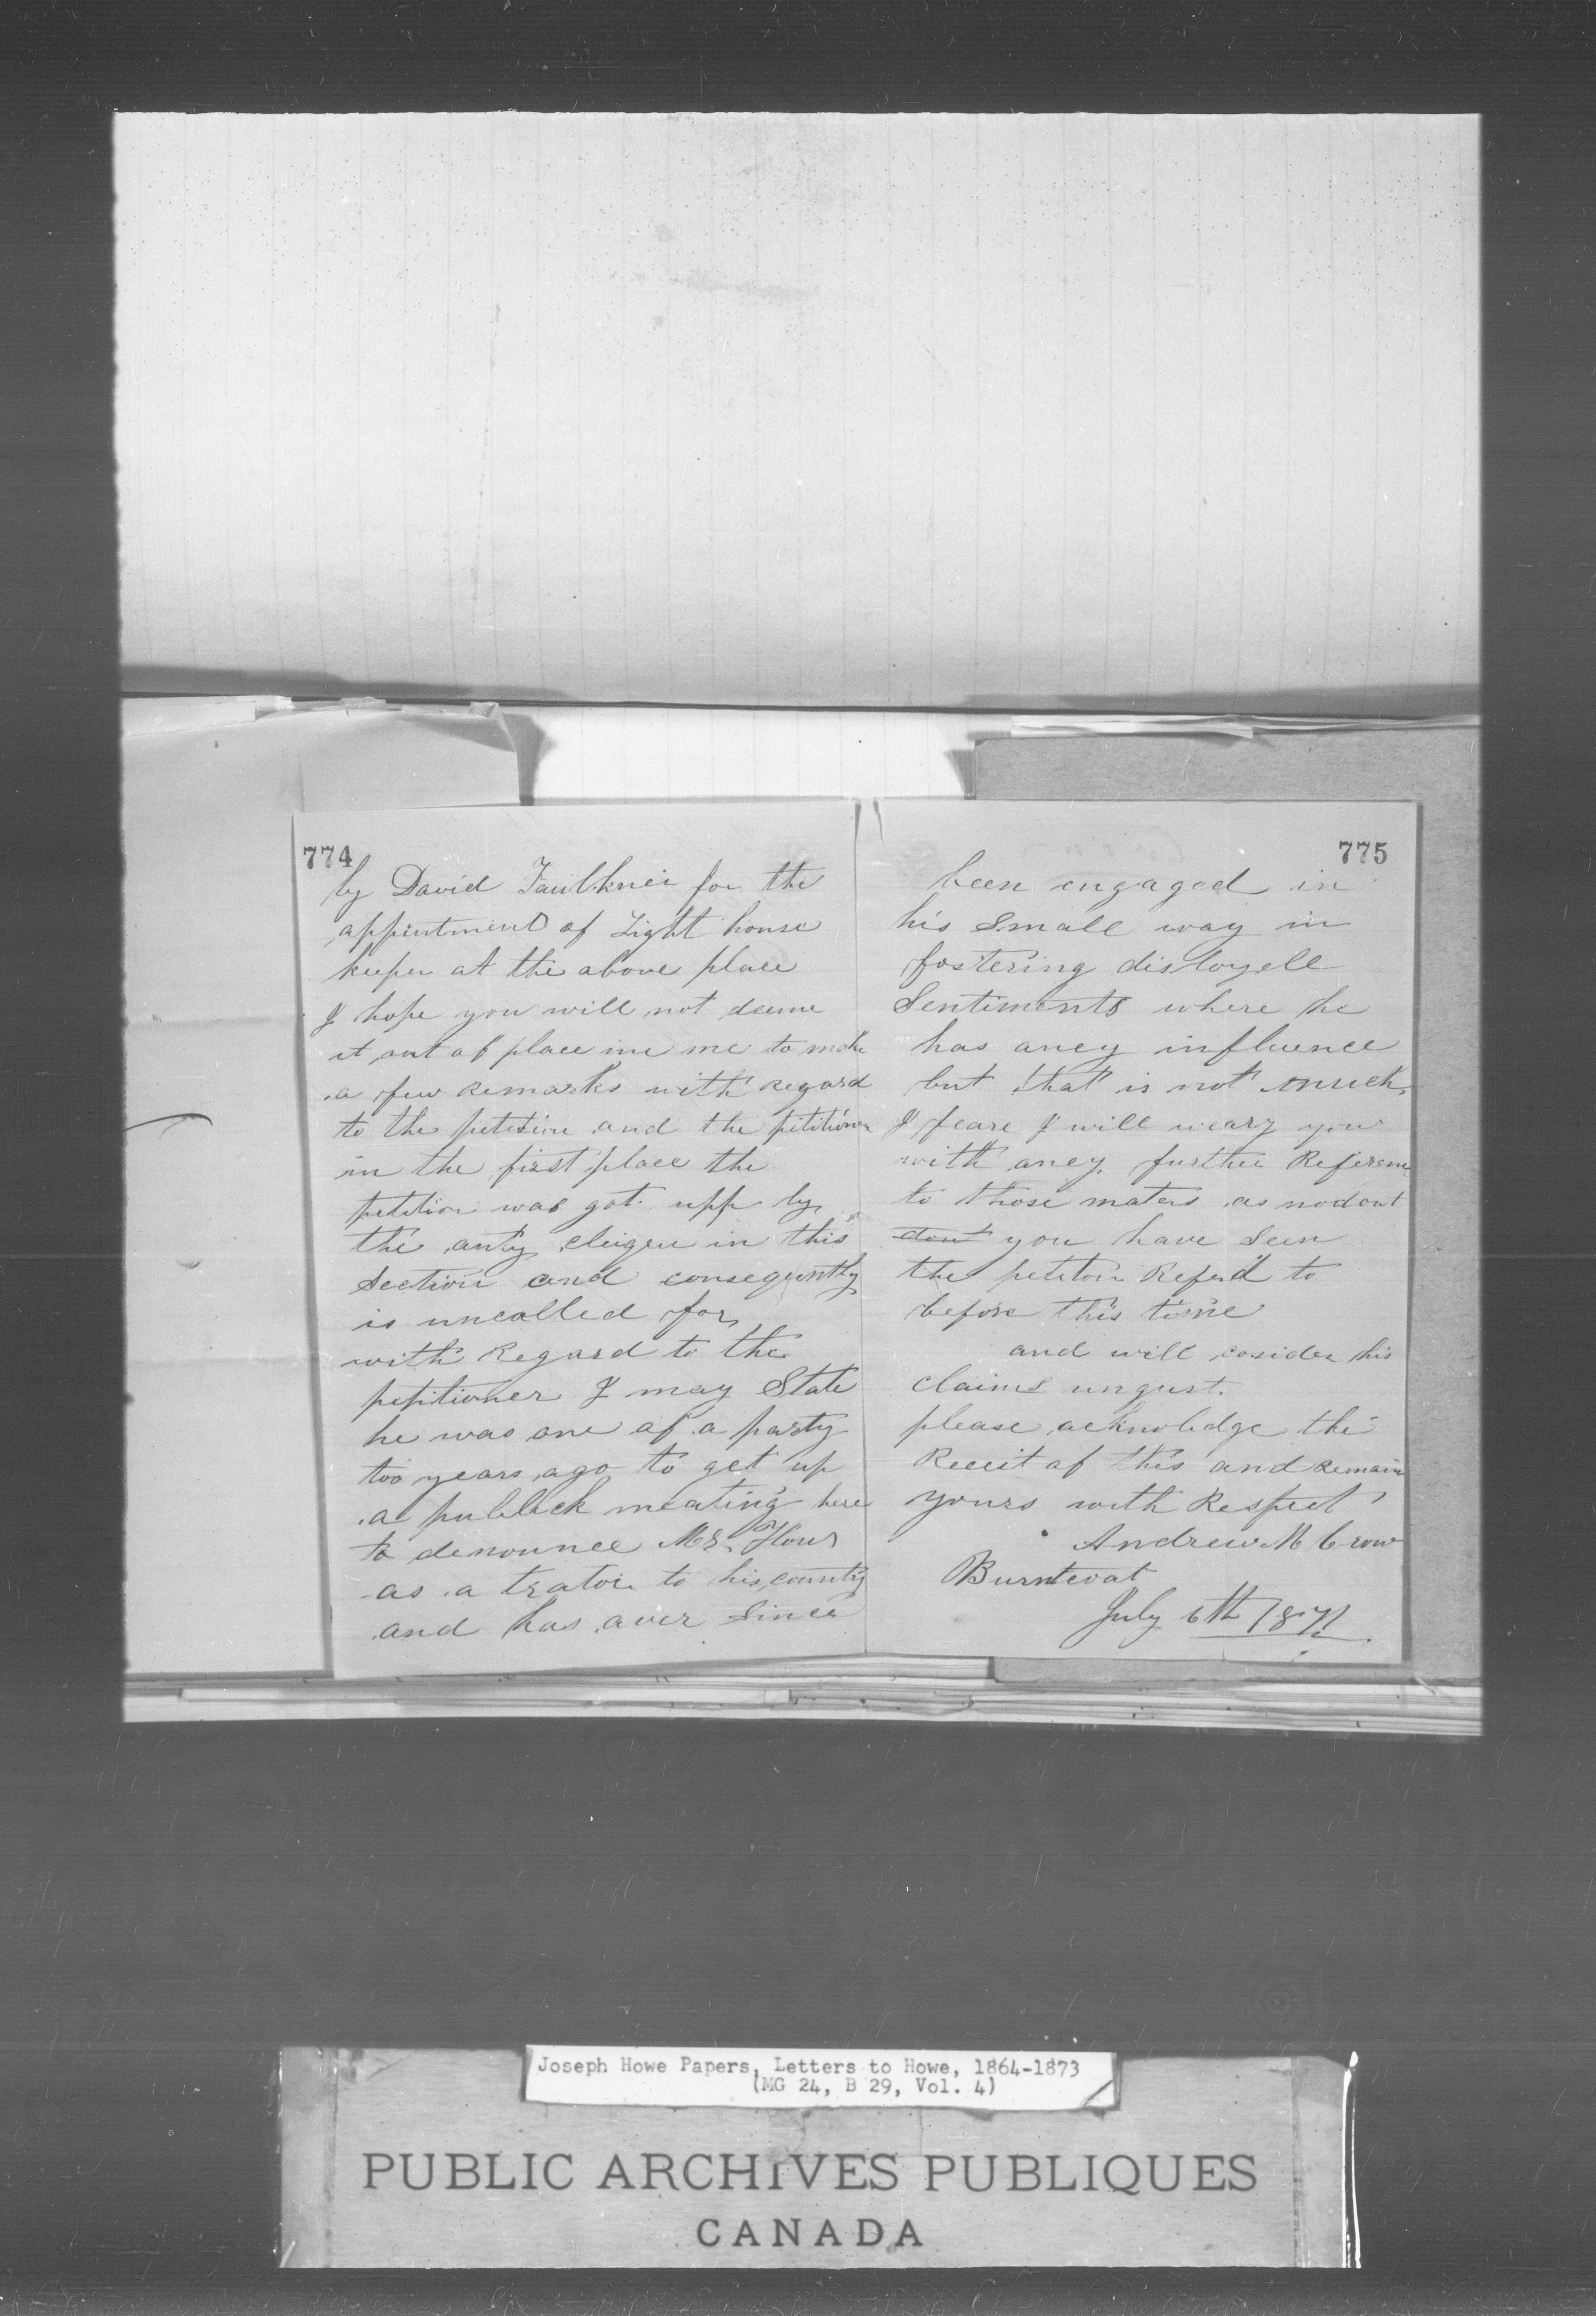 774
by David Faulkner for the
appintment of Light house
keeper at the above place
I hope you will not deeme
it out of place ine me to make
a few Remarks with Regard
to the petition and the petitioner
in the first place the
petition was got upp by
the anty cleigue in this
Section and consequntly
is uncalled for
with Regard to the
petitioner I may State
he was one of a party
too years ago to get up
a publick meating here
to denounce Mr. How
as a trator to his country
and has aver Since
775
been engaged in
his Small way in
fostering disloyell
Sentiments where he
has aney influence
but that is not much
I feare I will weary you
with aney further Referenc
to those maters as nodout
dout you have Seen
the petiton Referd to
before this time
and will cosider his
claims ungust.
please acknoledge the
Receit of this and Remain
yours with Respect
Andrew M Crow
Burntcoat
July 6th 1871
Joseph Howe Papers, Letters to Howe, 1864-1873
(MG 24, B 29, Vol. 4)
PUBLIC ARCHIVES PUBLIQUES
CANADA